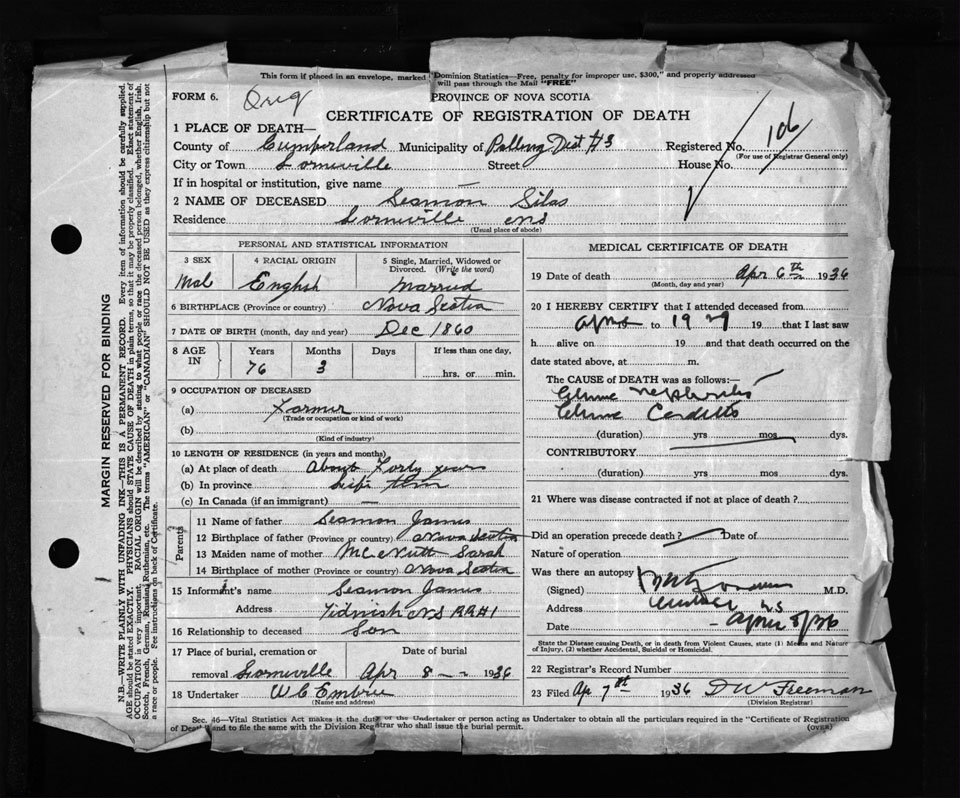 This form if placed in an envelope, marked "Dominion Statistics—Free, penalty for improper use, $300," and properly addressed
will pass through the Mail "FREE"
FORM 6. Orig
PROVINCE OF NOVA SCOTIA
CERTIFICATE OF REGISTRATION OF DEATH
1 PLACE OF DEATH—
County of Cumberland Municipality of Polling Dist #3 Registered No. 106
(For use of Registrar General only)
City or Town Lorneville Street House No.
If in hospital or institution, give name —
2 NAME OF DECEASED Seamon Silas
Residence Lornville NS
(Usual place of abode)
PERSONAL AND STATISTICAL INFORMATION
3 SEX 4 RACIAL ORIGIN 5 Single, Married, Widowed or Divorced. (Write the word)
Mal English Married
6 BIRTHPLACE (Province or country) Nova Scotia
7 DATE OF BIRTH (month, day and year) Dec 1860
8 AGE IN Years Months Days If less than one day,
76 3 hrs. or min.
9 OCCUPATION OF DECEASED
(a) Farmer
(Trade or occupation or kind of work)
(b)
(Kind of industry)
10 LENGTH OF RESIDENCE (in years and months)
(a) At place of death About Forty years
(b) In province
(c) In Canada (if an immigrant) —
Parents
11 Name of father Seamon James
12 Birthplace of father (Province or country) Nova Scotia
13 Maiden name of mother McNutt Sarah
14 Birthplace of mother (Province or country) Nova Scotia
15 Informant's name Seamon James
Address Tidnish NS RR#1
16 Relationship to deceased Son
17 Place of burial, cremation or removal Lorneville Date of burial Apr 8 — 1936
18 Undertaker W C Embree
(Name and address)
MEDICAL CERTIFICATE OF DEATH
19 Date of death Apr 6th 1936
(Month, day and year)
20 I HEREBY CERTIFY that I attended deceased from
to 19 29 19 that I last saw
h alive on 19 and that death occurred on the
date stated above, at m.
The CAUSE of DEATH was as follows:—
nephritis
(duration) yrs mos dys.
CONTRIBUTORY
(duration) yrs. mos. dys.
21 Where was disease contracted if not at place of death?
Did an operation precede death? Date of
Nature of operation
Was there an autopsy
(Signed) M.D.
Address NS
Date
State the Disease causing Death, or in death from Violent Causes, state (1) Means and Nature
of Injury, (2) whether Accidental, Suicidal or Homicidal.
22 Registrar's Record Number
23 Filed Ap 7th 1936 D W Freeman
(Division Registrar)
Sec. 46—Vital Statistics Act makes it the duty of the Undertaker or person acting as Undertaker to obtain all the particulars required in the "Certificate of Registration
of Death" and to file the same with the Division Registrar who shall issue the burial permit. (OVER)
MARGIN RESERVED FOR BINDING
N.B.—WRITE PLAINLY WITH UNFADING INK—THIS IS A PERMANENT RECORD. Every item of information should be carefully supplied.
AGE should be stated EXACTLY. PHYSICIANS should STATE CAUSE OF DEATH in plain terms, so that it may be properly classified. Exact statement of
OCCUPATION is very important. RACIAL ORIGIN will be described by stating to what people or race the deceased person belonged, whether English, Irish,
Scotch, French, German, Russian, Ruthenian, etc. The terms "AMERICAN" or "CANADIAN" SHOULD NOT BE USED as they express citizenship but not
a race or people. See instructions on back of Certificate.